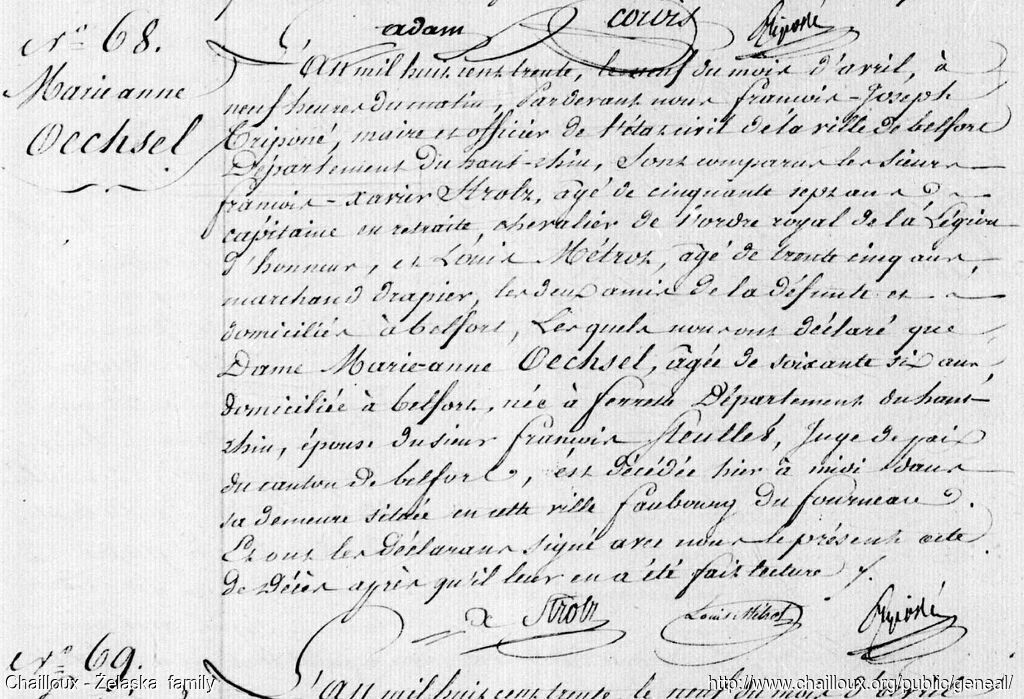 adam cours Triponé
N.º 68.
Marie anne
Oechsel
L'An mil huit cent trente, le neuf du mois d'avril, à
neuf heures du matin, Pardevant nous francois-Joseph
Triponé, maire et officier de l'état civil de la ville de belfort
Département du haut-rhin, sont comparus les sieurs
francois-xavier Strolz, âgé de cinquante sept ans
capitaine en retraite, chevalier de l'ordre royal de la Légion
d'honneur, et Louis Métroz, âgé de trente cinq ans,
marchand drapier, les deux amis de la défunte et
domiciliés à belfort, Lesquels nous ont déclaré que
Dame Marie-anne Oechsel, âgée de soixante six ans,
domiciliée à belfort, née à ferrete Département du haut
rhin, épouse du sieur francois Keullet, Juge de paix
du canton de belfort, est décédée hier à midi dans
sa demeure située en cette ville faubourg du fourneau.
Et ont les déclarans signé avec nous le présent acte
de Décès après qu'il leur en a été fait lecture
Strolz Louis Métroz Triponé
N.º 69.
L'An mil huit cent trente le neuf du mois
Chailloux - Żelaska family
http://www.chailloux.org/public/geneal/